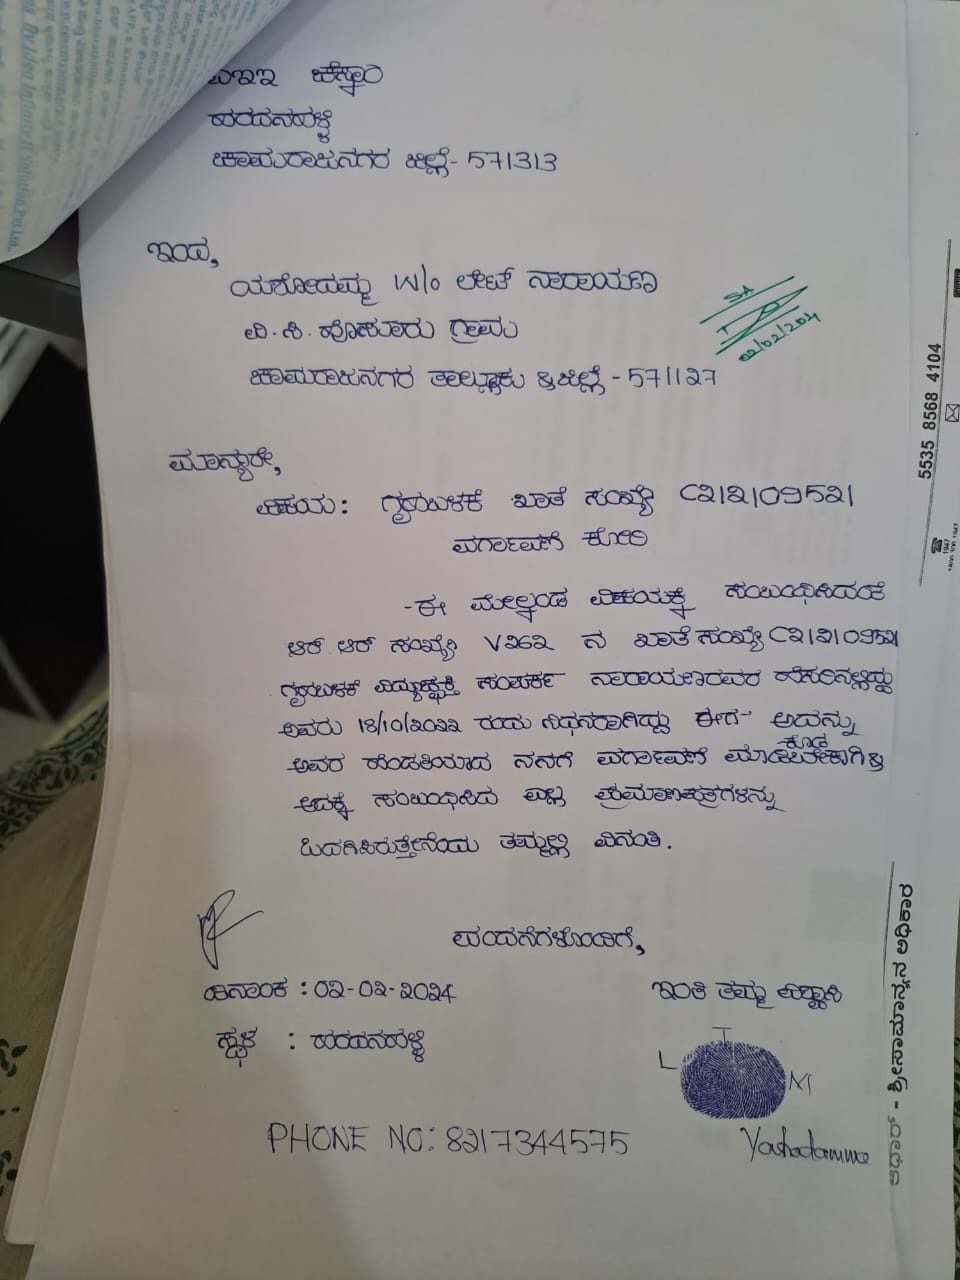 ಎಇಇ ಚೆಸ್ಕಾಂ
ಹರದನಹಳ್ಳಿ
ಚಾಮರಾಜನಗರ ಜಿಲ್ಲೆ- 571313
ಇಂದ,
ಯಶೋದಮ್ಮ W/o ಲೇಟ್ ನಾರಾಯಣ
ವಿ.ಸಿ. ಹೊಸೂರು ಗ್ರಾಮ
ಚಾಮರಾಜನಗರ ತಾಲ್ಲೂಕು & ಜಿಲ್ಲೆ - 571127
SA
02/02/204
ಮಾನ್ಯರೇ,
ವಿಷಯ: ಗೃಹಬಳಕೆ ಖಾತೆ ಸಂಖ್ಯೆ C212109521
ವರ್ಗಾವಣೆ ಕೋರಿ
-ಈ ಮೇಲ್ಕಂಡ ವಿಷಯಕ್ಕೆ ಸಂಬಂಧಿಸಿದಂತೆ
ಆರ್.ಆರ್ ಸಂಖ್ಯೆ V262 ನ ಖಾತೆ ಸಂಖ್ಯೆ C212109521
ಗೃಹಬಳಕೆ ವಿದ್ಯುಚ್ಛಕ್ತಿ ಸಂಪರ್ಕ ನಾರಾಯಣರವರ ಹೆಸರಿನಲ್ಲಿದ್ದು
ಅವರು 18/10/2022 ರಂದು ನಿಧನರಾಗಿದ್ದು ಈಗ ಅದನ್ನು
ಅವರ ಹೆಂಡತಿಯಾದ ನನಗೆ ವರ್ಗಾವಣೆ ಮಾಡಿಕೊಡಬೇಕಾಗಿ &
ಅದಕ್ಕೆ ಸಂಬಂಧಿಸಿದ ಎಲ್ಲಾ ಪ್ರಮಾಣಪತ್ರಗಳನ್ನು
ಒದಗಿಸಿರುತ್ತೇನೆಂದು ತಮ್ಮಲ್ಲಿ ವಿನಂತಿ.
ವಂದನೆಗಳೊಂದಿಗೆ,
ದಿನಾಂಕ : 02-02-2024 ಇಂತಿ ತಮ್ಮ ವಿಶ್ವಾಸಿ
ಸ್ಥಳ : ಹರದನಹಳ್ಳಿ
L T M
PHONE NO: 8217344575 Yashodamma
5535 8568 4104
1947
ಆಧಾರ್ - ಶ್ರೀಸಾಮಾನ್ಯನ ಅಧಿಕಾರ